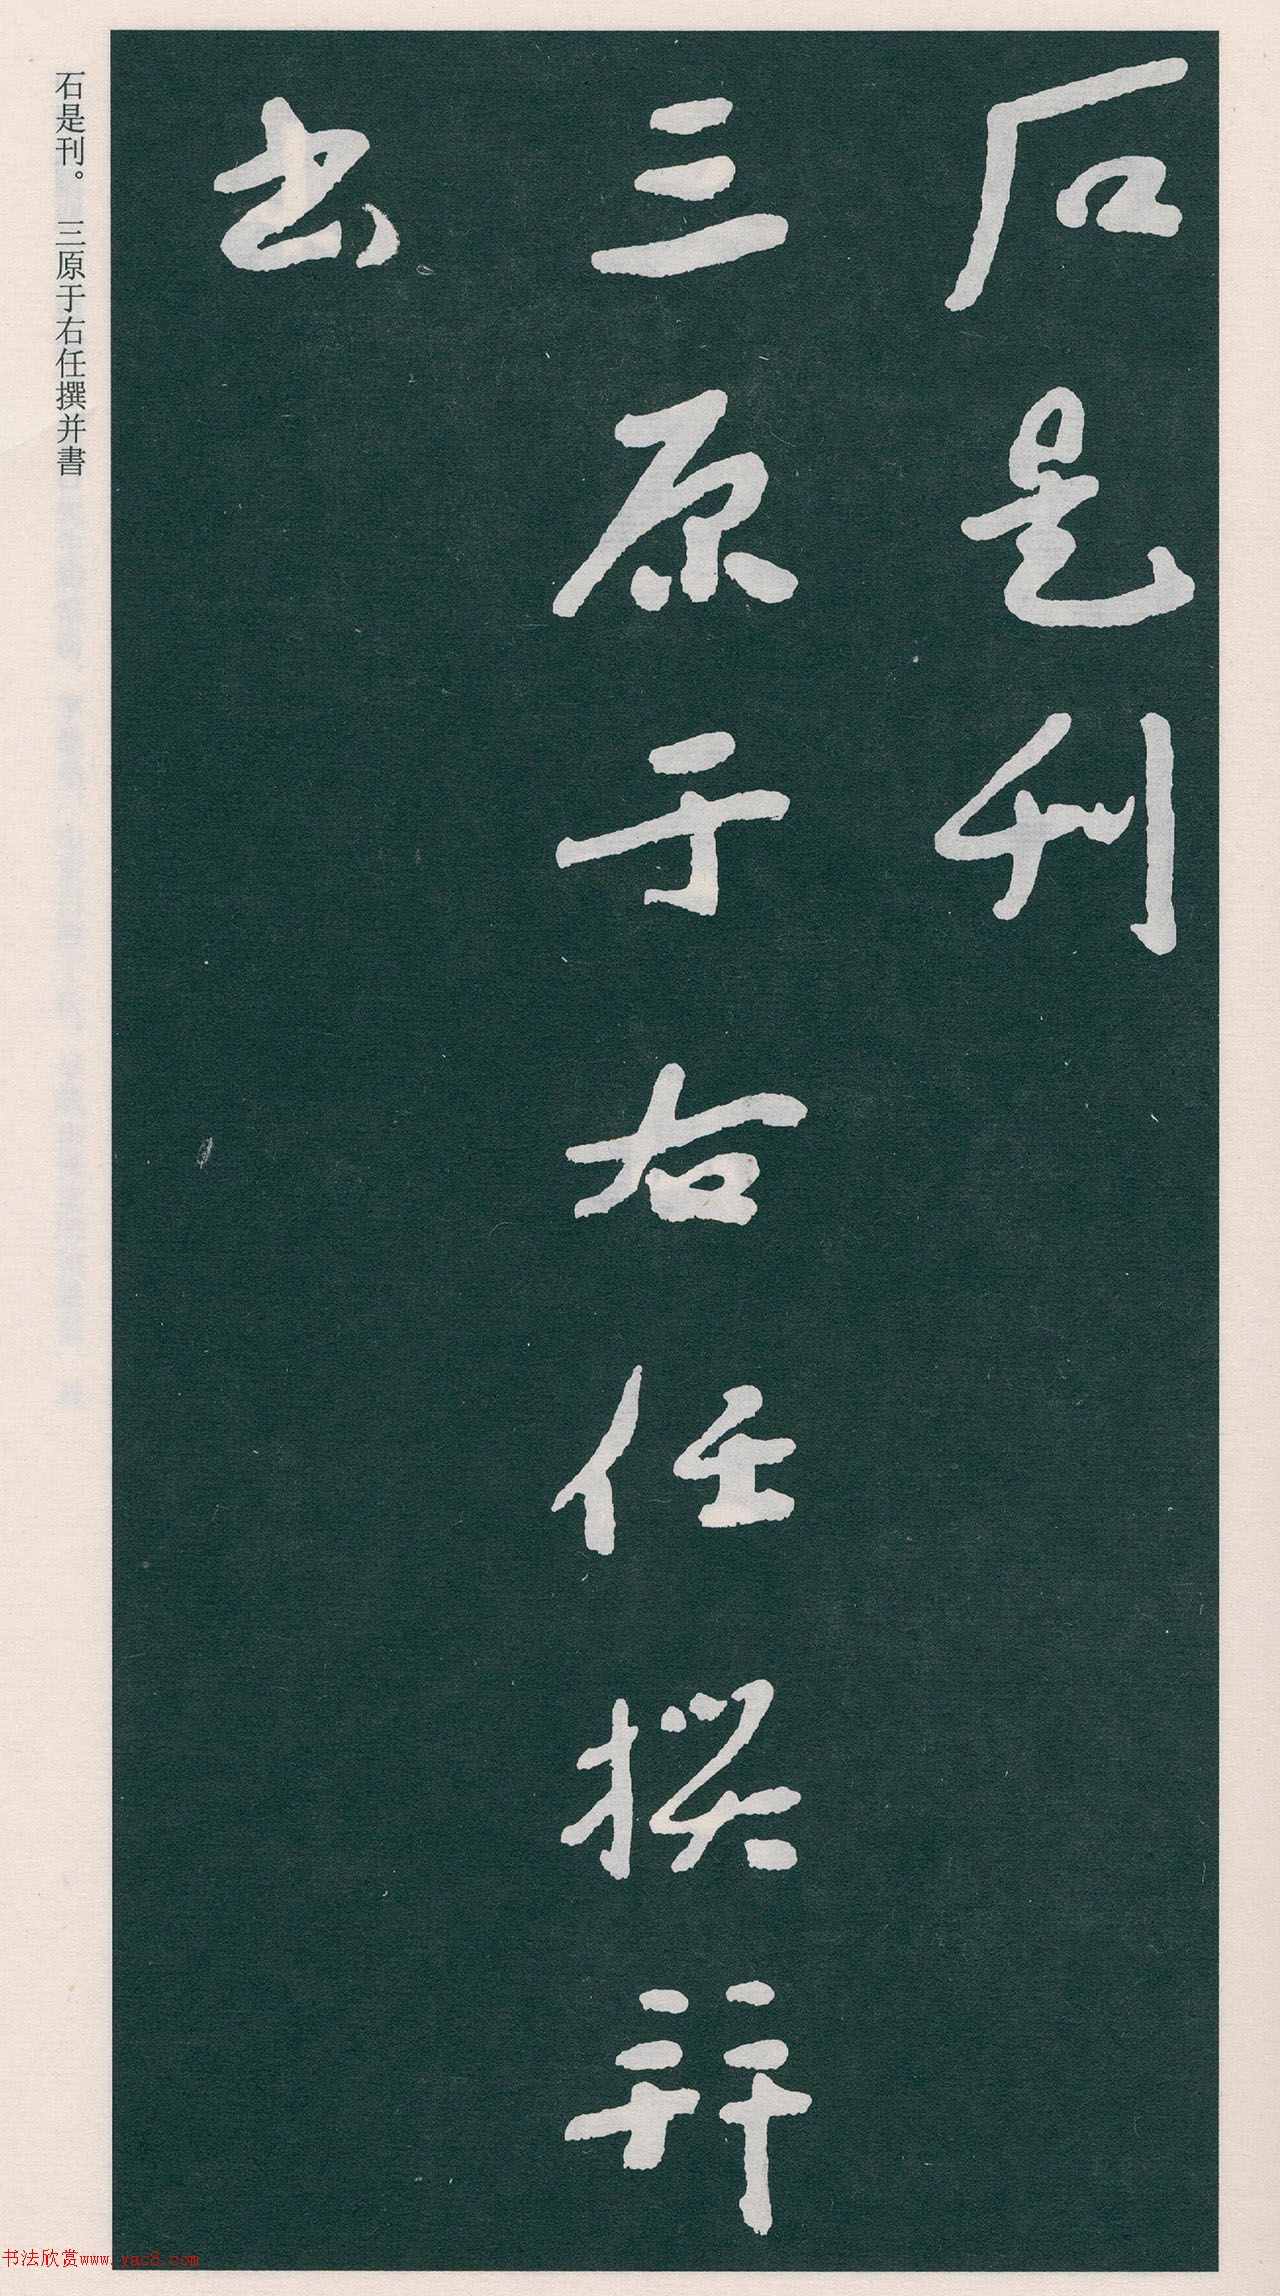 石是刊
三原于右任撰并
书
石是刊。三原于右任撰并書
书法欣赏www.yac8.com